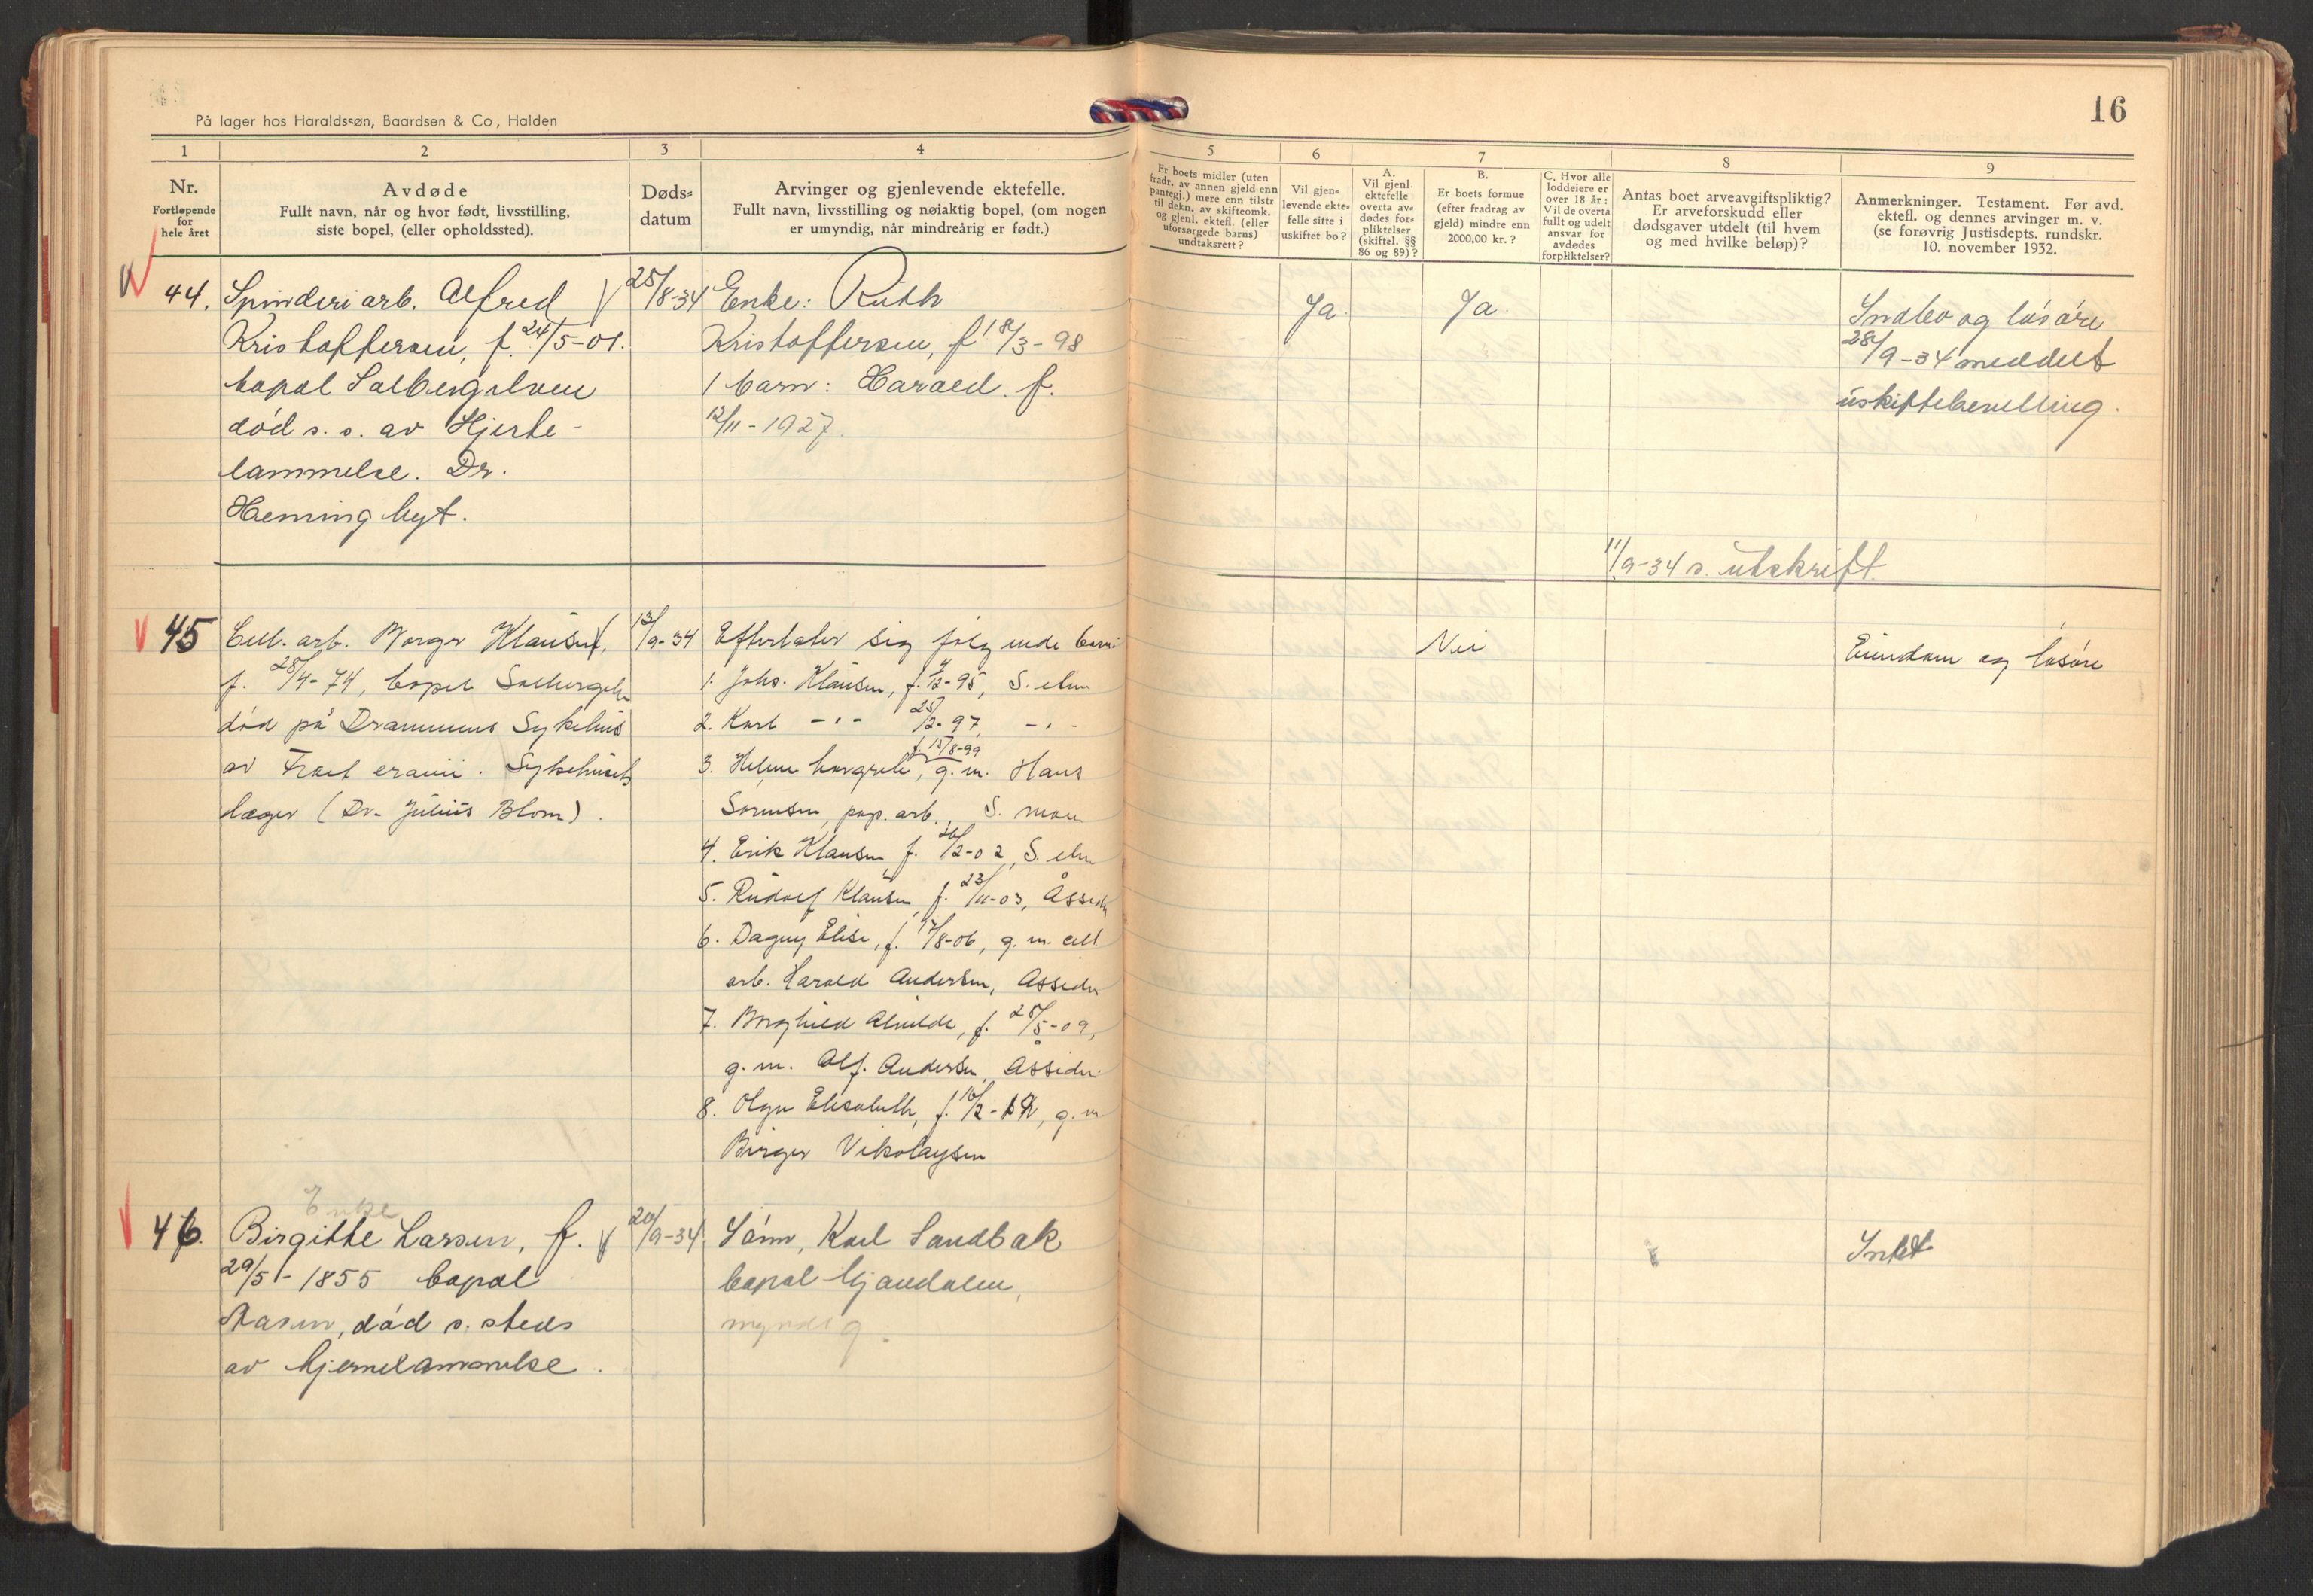 På lager hos Haraldssøn, Baardsen & Co, Halden
16
1 2 3 4 5 6 7 8 9
Nr.
Fortløpende
for
hele året
Avdøde
Fullt navn, når og hvor født, livsstilling,
siste bopel, (eller opholdssted).
Døds-
datum
Arvinger og gjenlevende ektefelle.
Fullt navn, livsstilling og nøiaktig bopel, (om nogen
er umyndig, når mindreårig er født.)
Er boets midler (uten
fradr. av annen gjeld enn
pantegj.) mere enn tilstr
til dekn. av skifteomk.
og gjenl. ektefl. (eller
uforsørgede barns)
undtaksrett?
Vil gjen-
levende ekte-
felle sitte i
uskiftet bo?
A.
Vil gjenl.
ektefelle
overta av-
dødes for-
pliktelser
(skiftel. §§
86 og 89)?
B.
Er boets formue
(efter fradrag av
gjeld) mindre enn
2000,00 kr.?
C. Hvor alle
loddeiere er
over 18 år:
Vil de overta
fullt og udelt
ansvar for
avdødes
forpliktelser?
Antas boet arveavgiftspliktig?
Er arveforskudd eller
dødsgaver utdelt (til hvem
og med hvilke beløp)?
Anmerkninger. Testament. Før avd.
ektefl. og dennes arvinger m. v.
(se forøvrig Justisdepts. rundskr.
10. november 1932.
44. Spinderiarb. Alfred
Kristoffersen, f. 24/5-01.
bopal Solbergelven
død s. s. av Hjerte-
lammelse. Dr.
Heming
25/8-34
Enke: Ruth
Kristoffersen, f 18/3-98
1 barn: Harald. f.
12/11-1927.
Ja.
Ja
Indbo og løsøre
28/9-34 meddelt
uskiftebevilling.
11/9-34 s. utskrift
45 Cell. arb. Borger Klausen,
f. 28/4-74, bopel Solbergelv
død på Drammens Sykehus
av Sykehusets
læger (Dr. Julius Blom).
13/9-34
Efterlater sig følgende barn:
1. Johs. Klausen, S. elven
2. Karl -"- 25/2-97, -"-
f. 15/8-99
3. Helene g. m. Hans
Sørensen, pap. arb., S. moen
4. Erik Klausen f. 26/2-02, S. elven
5. Rudolf Klausen, f. 23/11-03, Åssiden
6. Dagny Elise, f. 17/8-06, g. m. cell
arb. Harald Andersen, Åssiden
7. Borghild Alvilde, f. 25/5-09,
g. m. Alf. Andersen, Åssiden
8. Olga Elisabeth, f. 16/2- g. m.
Birger Nikolaysen
Nei
Eiendom og løsøre
Enke
46. Birgitte Larsen, f.
29/5-1855 bopal
Aasen, død s. steds
av hjernelammelse.
20/9-34
Sønn, Karl Sandbak
bopal Mjøndalen,
myndig.
Intet